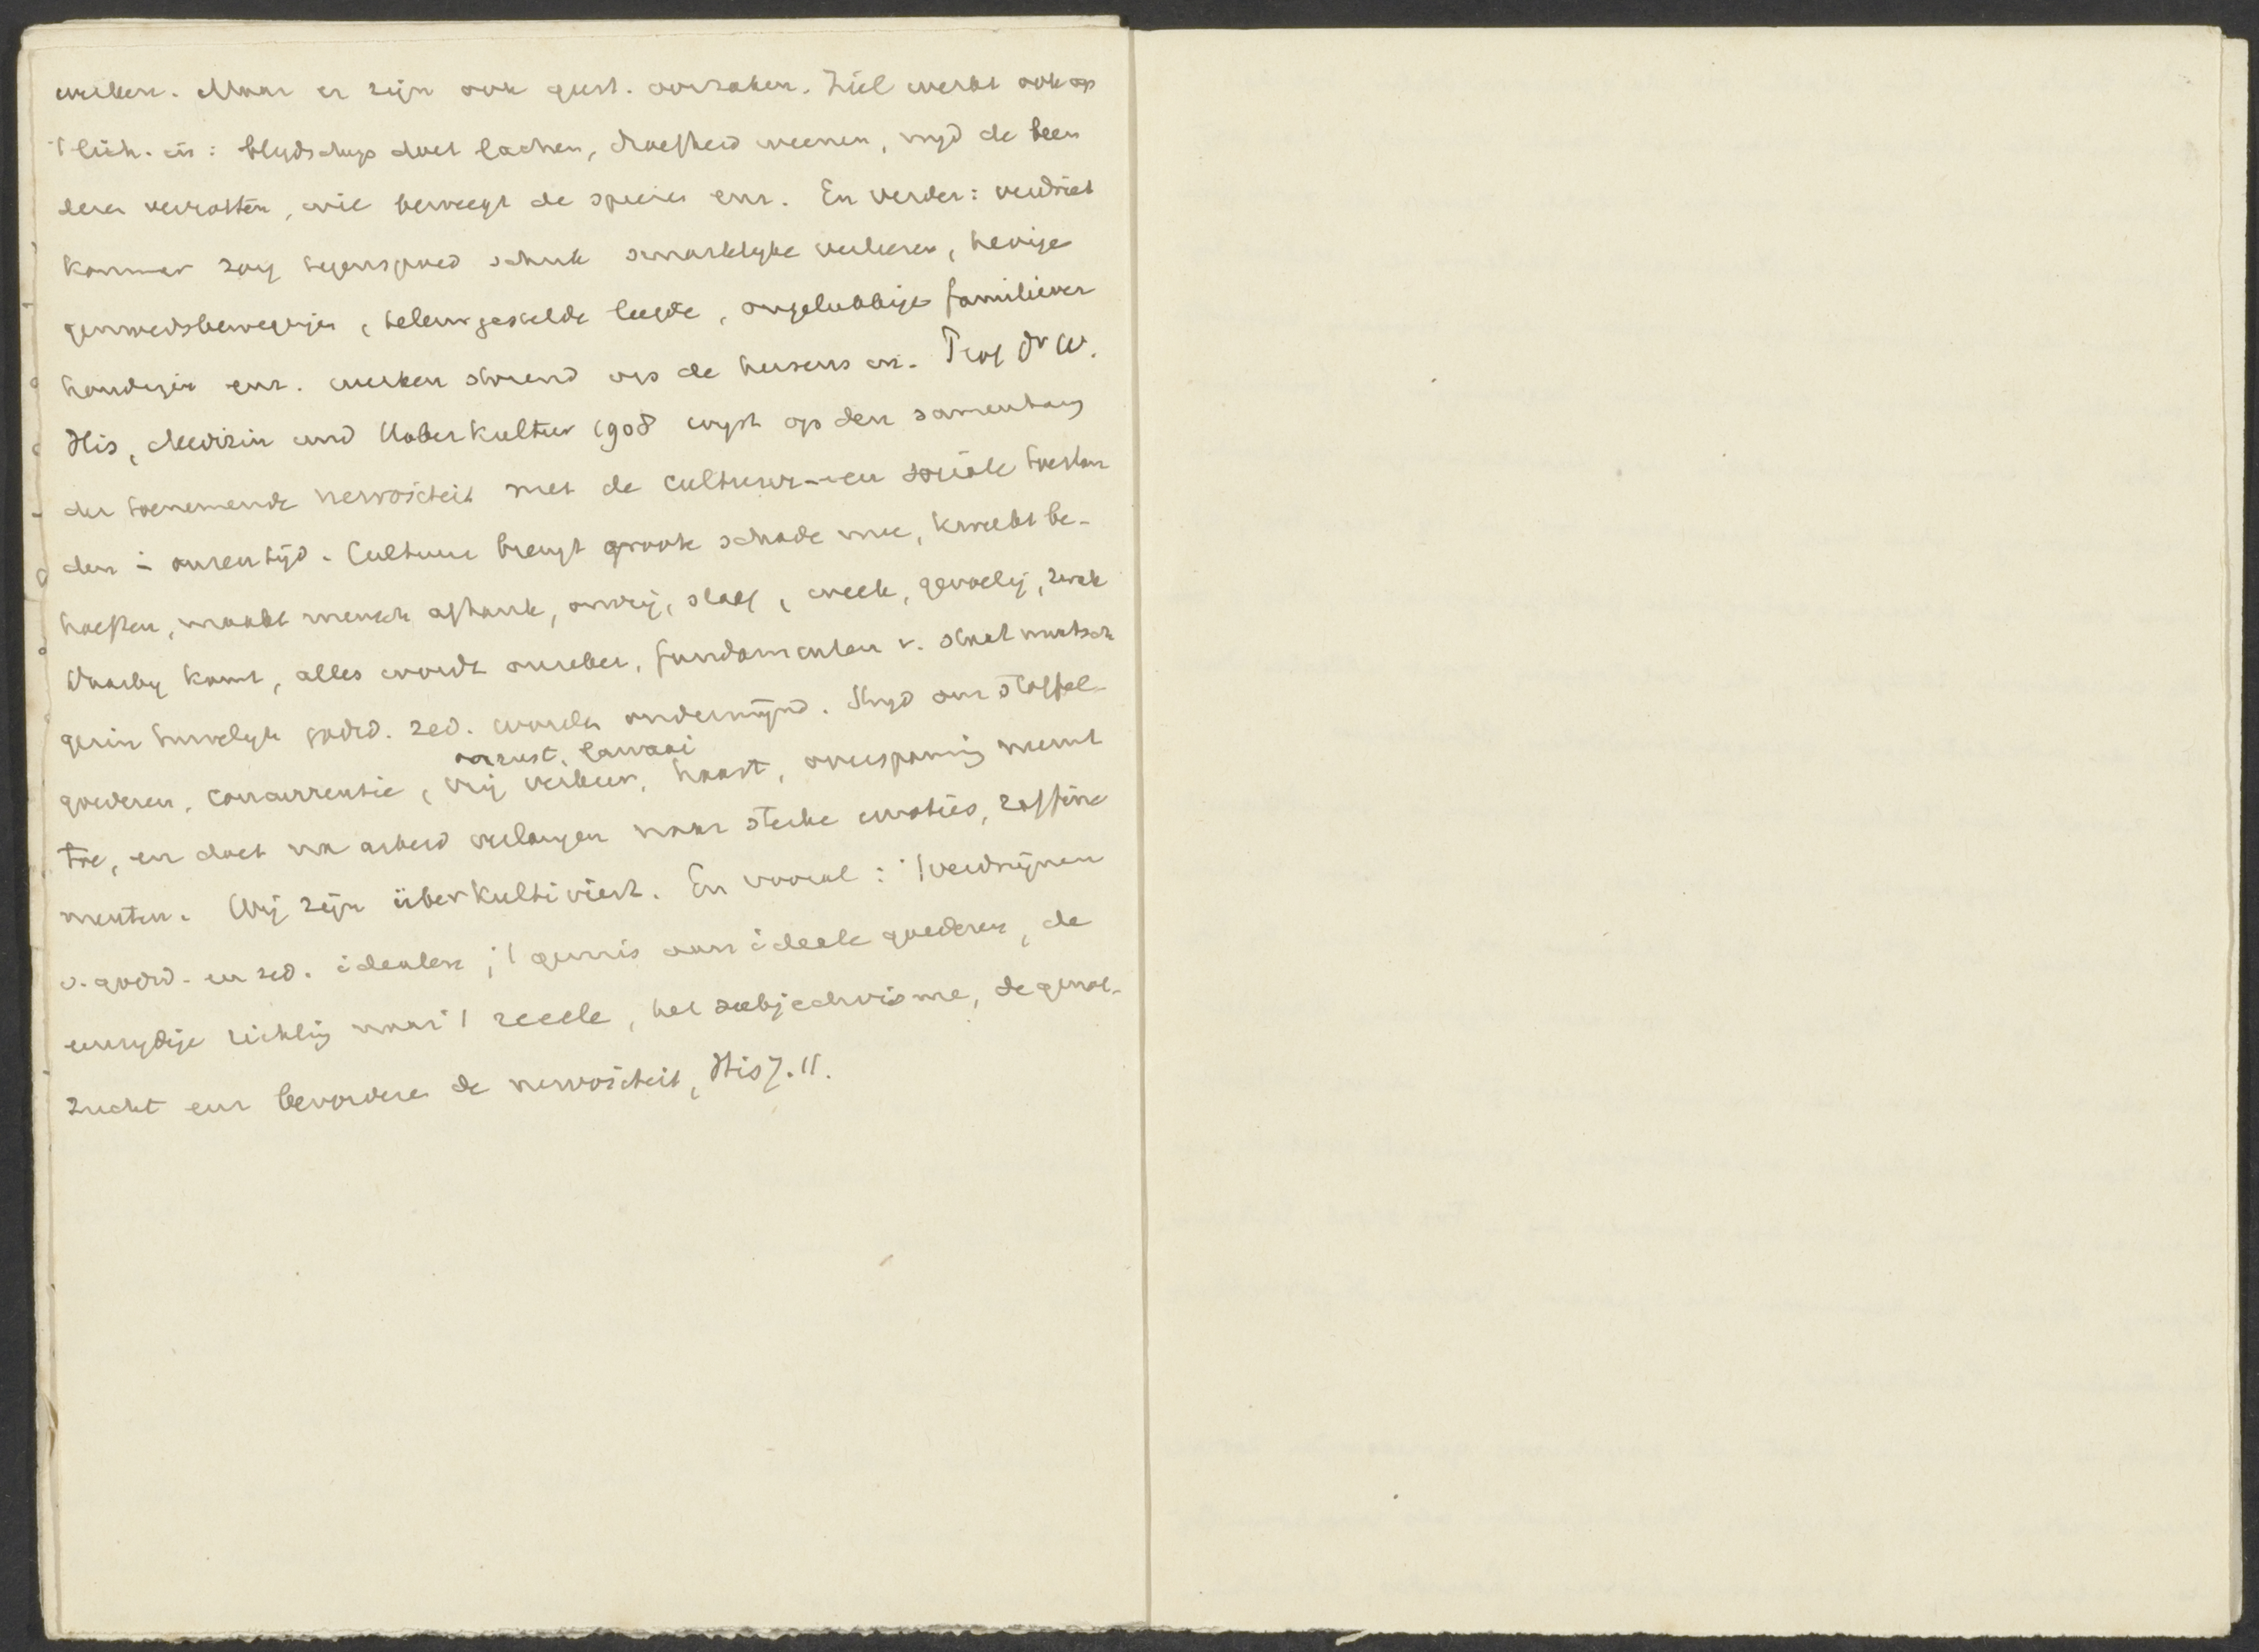 werken. Maar er zijn ook geest. oorzaken. Ziel werkt ook op
't lich. in: blydschap doet lachen, droefheid weenen, nyd de been
deren verrotten, wil beweegt de spieren enz. En verder: verdriet
kommer zorg tegenspoed schrik smartelyke verliezen, hevige
gemoedsbewegingen, teleurgestelde liefde, ongelukkige familiever
houdingen enz. werken storend op de hersens in. Prof Dr W.
His, Medizin und Ueberkultur 1908 wyst op den samenhang
der toenemende nervositeit met de cultuur- en sociale toestan
den in onzen tijd. Cultuur brengt groote schade mee, kweekt be-
hoeften, maakt mensch afhank, onvrij, slaaf, week, gevoelig, zwak
Daarby komt, alles wordt onzeker, fundamenten v. staat maatsch
gezin huwelyk godsd. zed. worden ondermijnd. Stryd om stoffel-
onrust, lawaai
goederen, concurrentie, vrij verkeer, haast, overspanning neemt
toe, en doet na arbeid verlangen naar sterke emoties, raffine
menten. Wij zijn überkultiviert. En vooral: 't verdwijnen
v. godsd. en zed. idealen; 't gemis aan ideele goederen, de
eenzydige richting naar 't reeele, het subjectivisme, de genot-
zucht enz bevorderen de nervositeit, His 7.11.